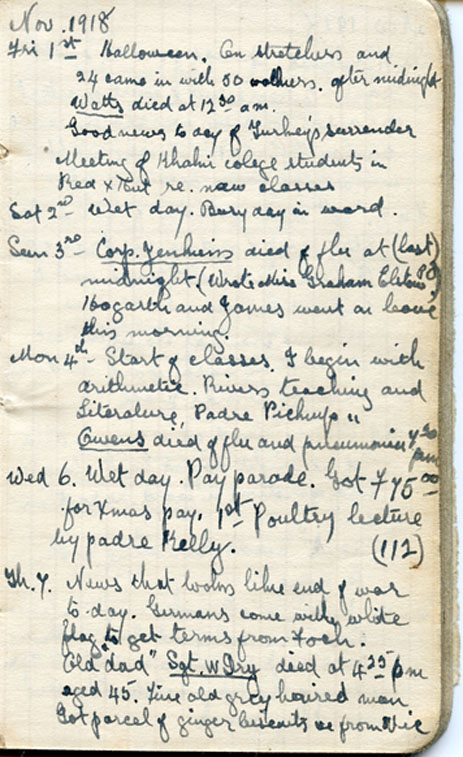 Nov. 1918
Fri 1st Halloween. On stretchers and
24 came in with 50 walkers. after midnight
Watts died at 12 30 a.m.
Good news to day of Turkey's surrender
Meeting of Khaki college students in
Red x Tent re. new classes
Sat 2nd - Wet day. Busy day in ward.
Sun 3rd - Corp. Jenkins died of flu at (last)
midnight. (Wrote Miss Graham
Hogarth and James went on leave
this morning.
Mon 4th - Start of classes. I begin with
arithmetic. Rivers teaching and
Literature, Padre Pickup "
Owens died of flu and pneumonia 7 30 pm
Wed 6. Wet day. Pay parade. Got 775 00
for Xmas pay. 1st Poultry lecture
by padre Kelly. (112)
Th. 7. News that looks like end of war
to-day. Germans come with white
flag to get terms from Foch.
Old "dad" Sgt. W died at 4 25 pm
aged 45. Fine old grey haired man
Got parcel of ginger biscuits from Vic